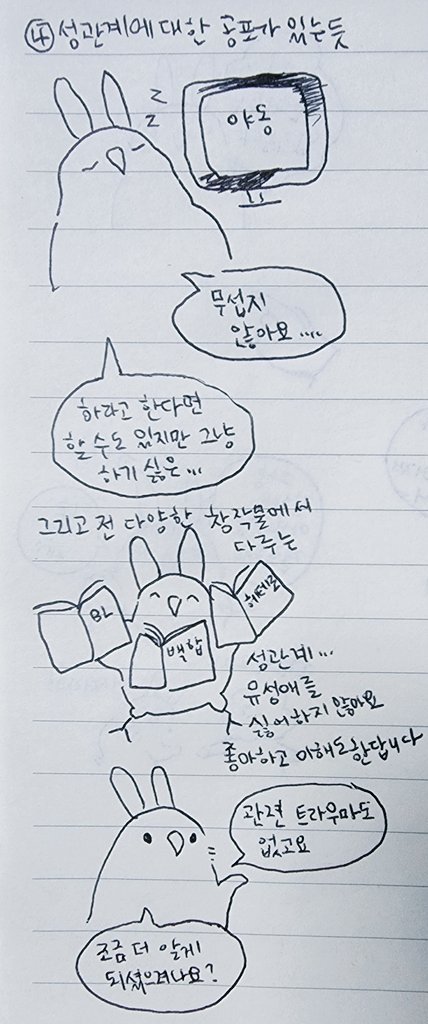 ④ 성관계에 대한 공포가 있는듯
z
z
야동
무섭지
않아요....
하라고 한다면
할 수도 있지만 그냥
하기 싫은...
그리고 전 다양한 창작물에서
다루는
BL
백합
헤테로
성관계...
유성애를
싫어하지 않아요
좋아하고 이해도 한답니다
관련 트라우마도
없고요
조금 더 알게
되셨으려나요?